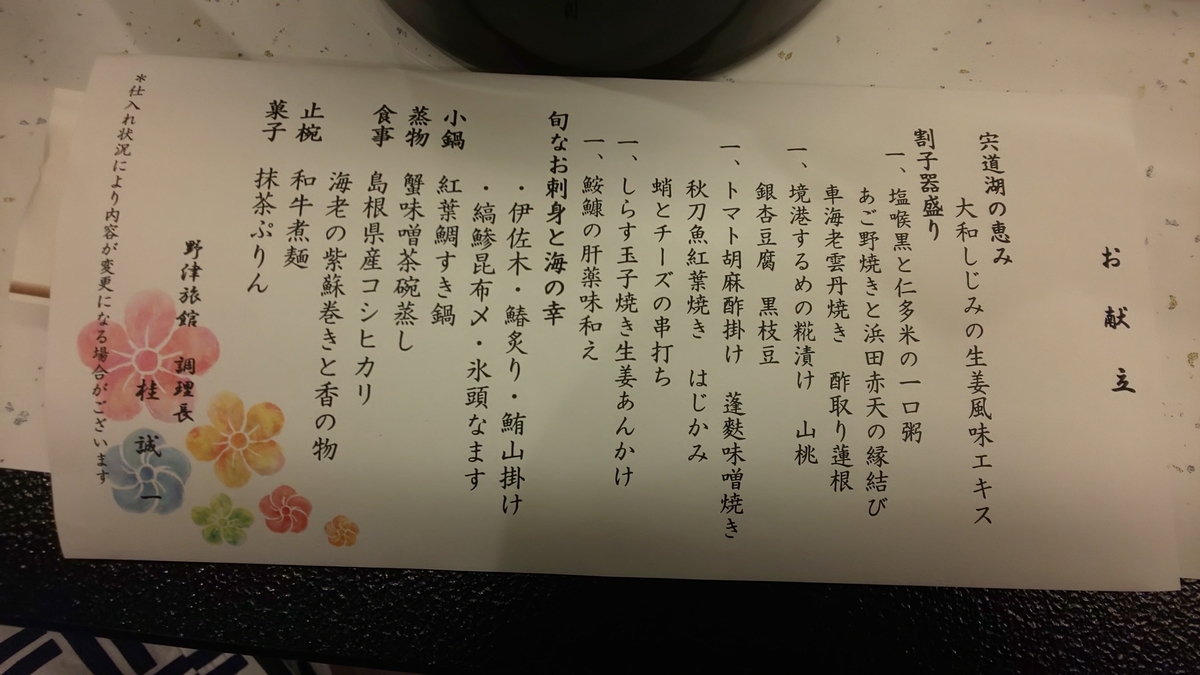 お献立
宍道湖の恵み
大和しじみの生姜風味エキス
割子器盛り
一、塩喉黒と仁多米の一口粥
あご野焼きと浜田赤天の縁結び
車海老雲丹焼き 酢取り蓮根
一、境港するめの糀漬け 山桃
銀杏豆腐 黒枝豆
一、トマト胡麻酢掛け 蓬麩味噌焼き
秋刀魚紅葉焼き はじかみ
蛸とチーズの串打ち
一、しらす玉子焼き生姜あんかけ
一、鮟鱇の肝薬味和え
旬なお刺身と海の幸
・伊佐木・鰆炙り・鮪山掛け
・縞鯵昆布〆・氷頭なます
小鍋 紅葉鯛すき鍋
蒸物 蟹味噌茶碗蒸し
食事 島根県産コシヒカリ
海老の紫蘇巻きと香の物
止椀 和牛煮麺
菓子 抹茶ぷりん
野津旅館 調理長
桂 誠一
*仕入れ状況により内容が変更になる場合がございます